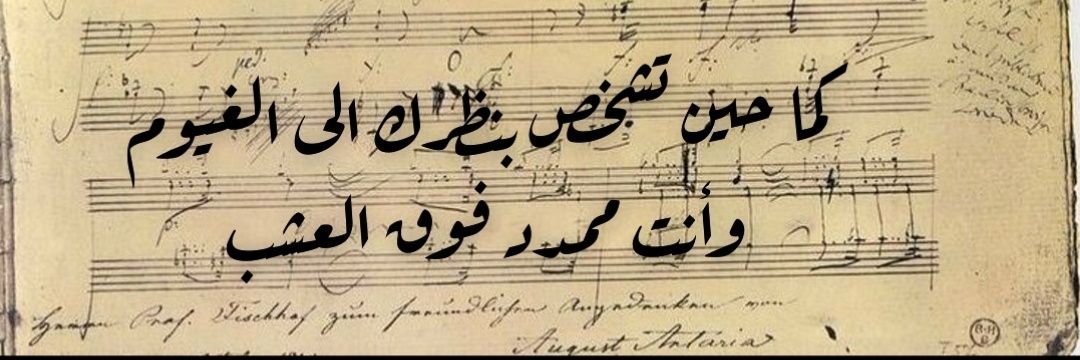 كما حين تشخص بنظرك الى الغيوم
وأنت ممدد فوق العشب
Herrn Prof. Fischhof zum freundlichen Angedenken von
August Artaria